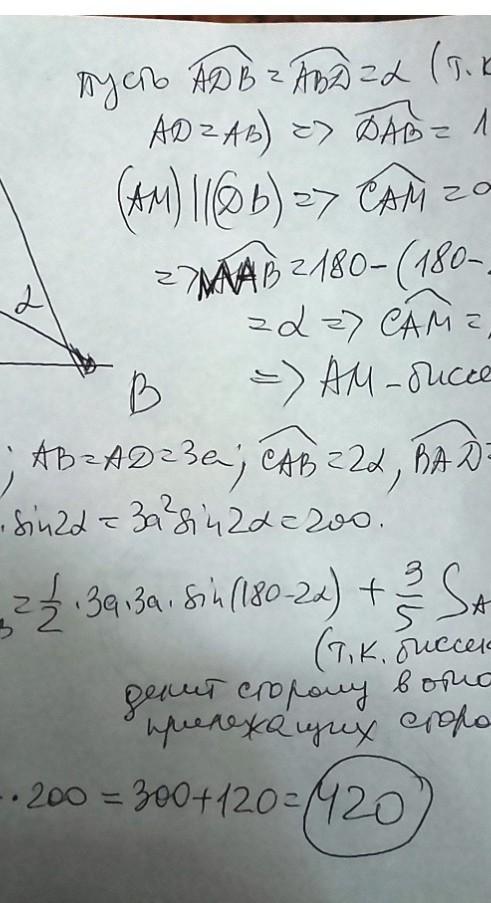 пусть ADB = ABD = α (т.к
AD = AB) => DAB = 1
(AM) || (DB) => CAM = α
=> MAB = 180 - (180 -
= α => CAM =
=> AM - биссе
α
B
; AB = AD = 3a; CAB = 2α, BAD =
. sin2α = 3a² sin2α = 200.
B = 1/2 · 3a · 3a · sin(180 - 2α) + 3/5 S A
(т.к. биссек
делит сторону в отно
прилежащих сторо
· 200 = 300 + 120 = 420